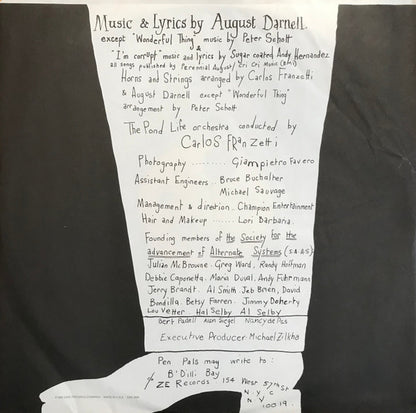 Music & Lyrics by August Darnell.
except "Wonderful Thing" music by Peter Schott
&
"I'm corrupt" music and lyrics by Sugar coated Andy Hernandez
all songs published by Perennial August / Cri Cri Music (BMI)
Horns and Strings arranged by Carlos Franzetti
& August Darnell except "Wonderful Thing"
arrangement by Peter Schott
The Pond Life orchestra conducted by
CARLOS FRANZETTI
Photography ........ Giampietro Favero
Assistant Engineers.. Bruce Buchalter
Michael Sauvage
Management & direction. Champion Entertainment
Hair and Makeup ...... Lori Barbaria.
Founding members of the Society for the
advancement of Alternate Systems (S.A.A.S)
Julian McBrowne. Greg Ward, Randy Hoffman
Debbie Caponetta. Mona Duval. Andy Fuhrmann
Jerry Brandt. Al Smith Jeb Brien, David
Bondilla. Betsy Farren. Jimmy Doherty
Lou Vetter Hal Selby Al Selby
Bert Padell Alan Siegel Nancy de Pos
Executive Producer Michael Zilkha
Pen Pals may write to:
B'Dilli Bay
ZE Records 154 West 57th St
N.Y.C
N.Y.
10019.